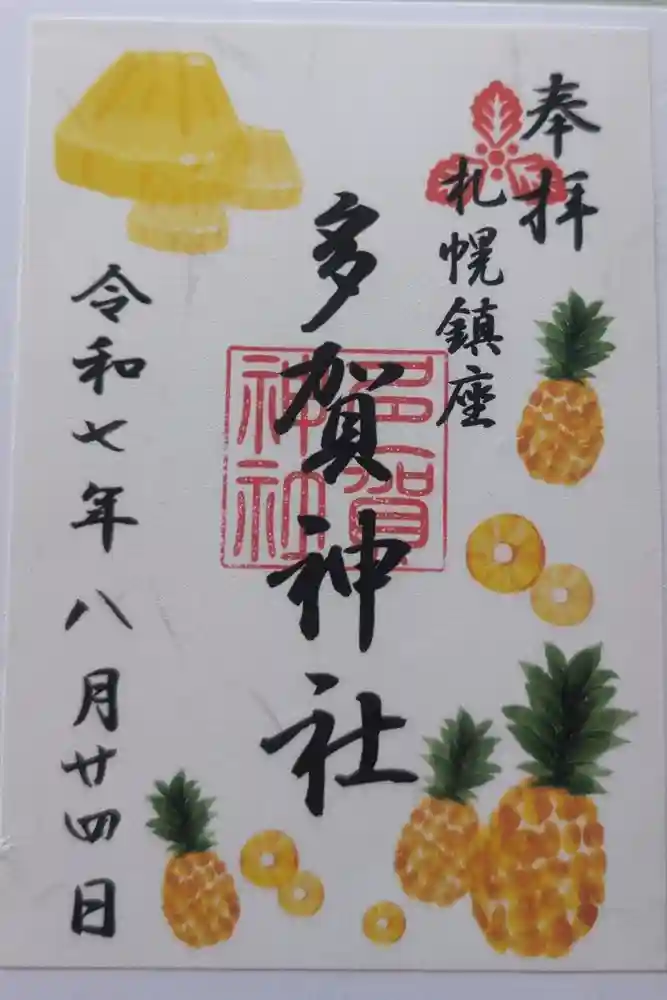 奉拝
札幌鎮座
多賀神社
多賀
神社
令和七年八月廿四日